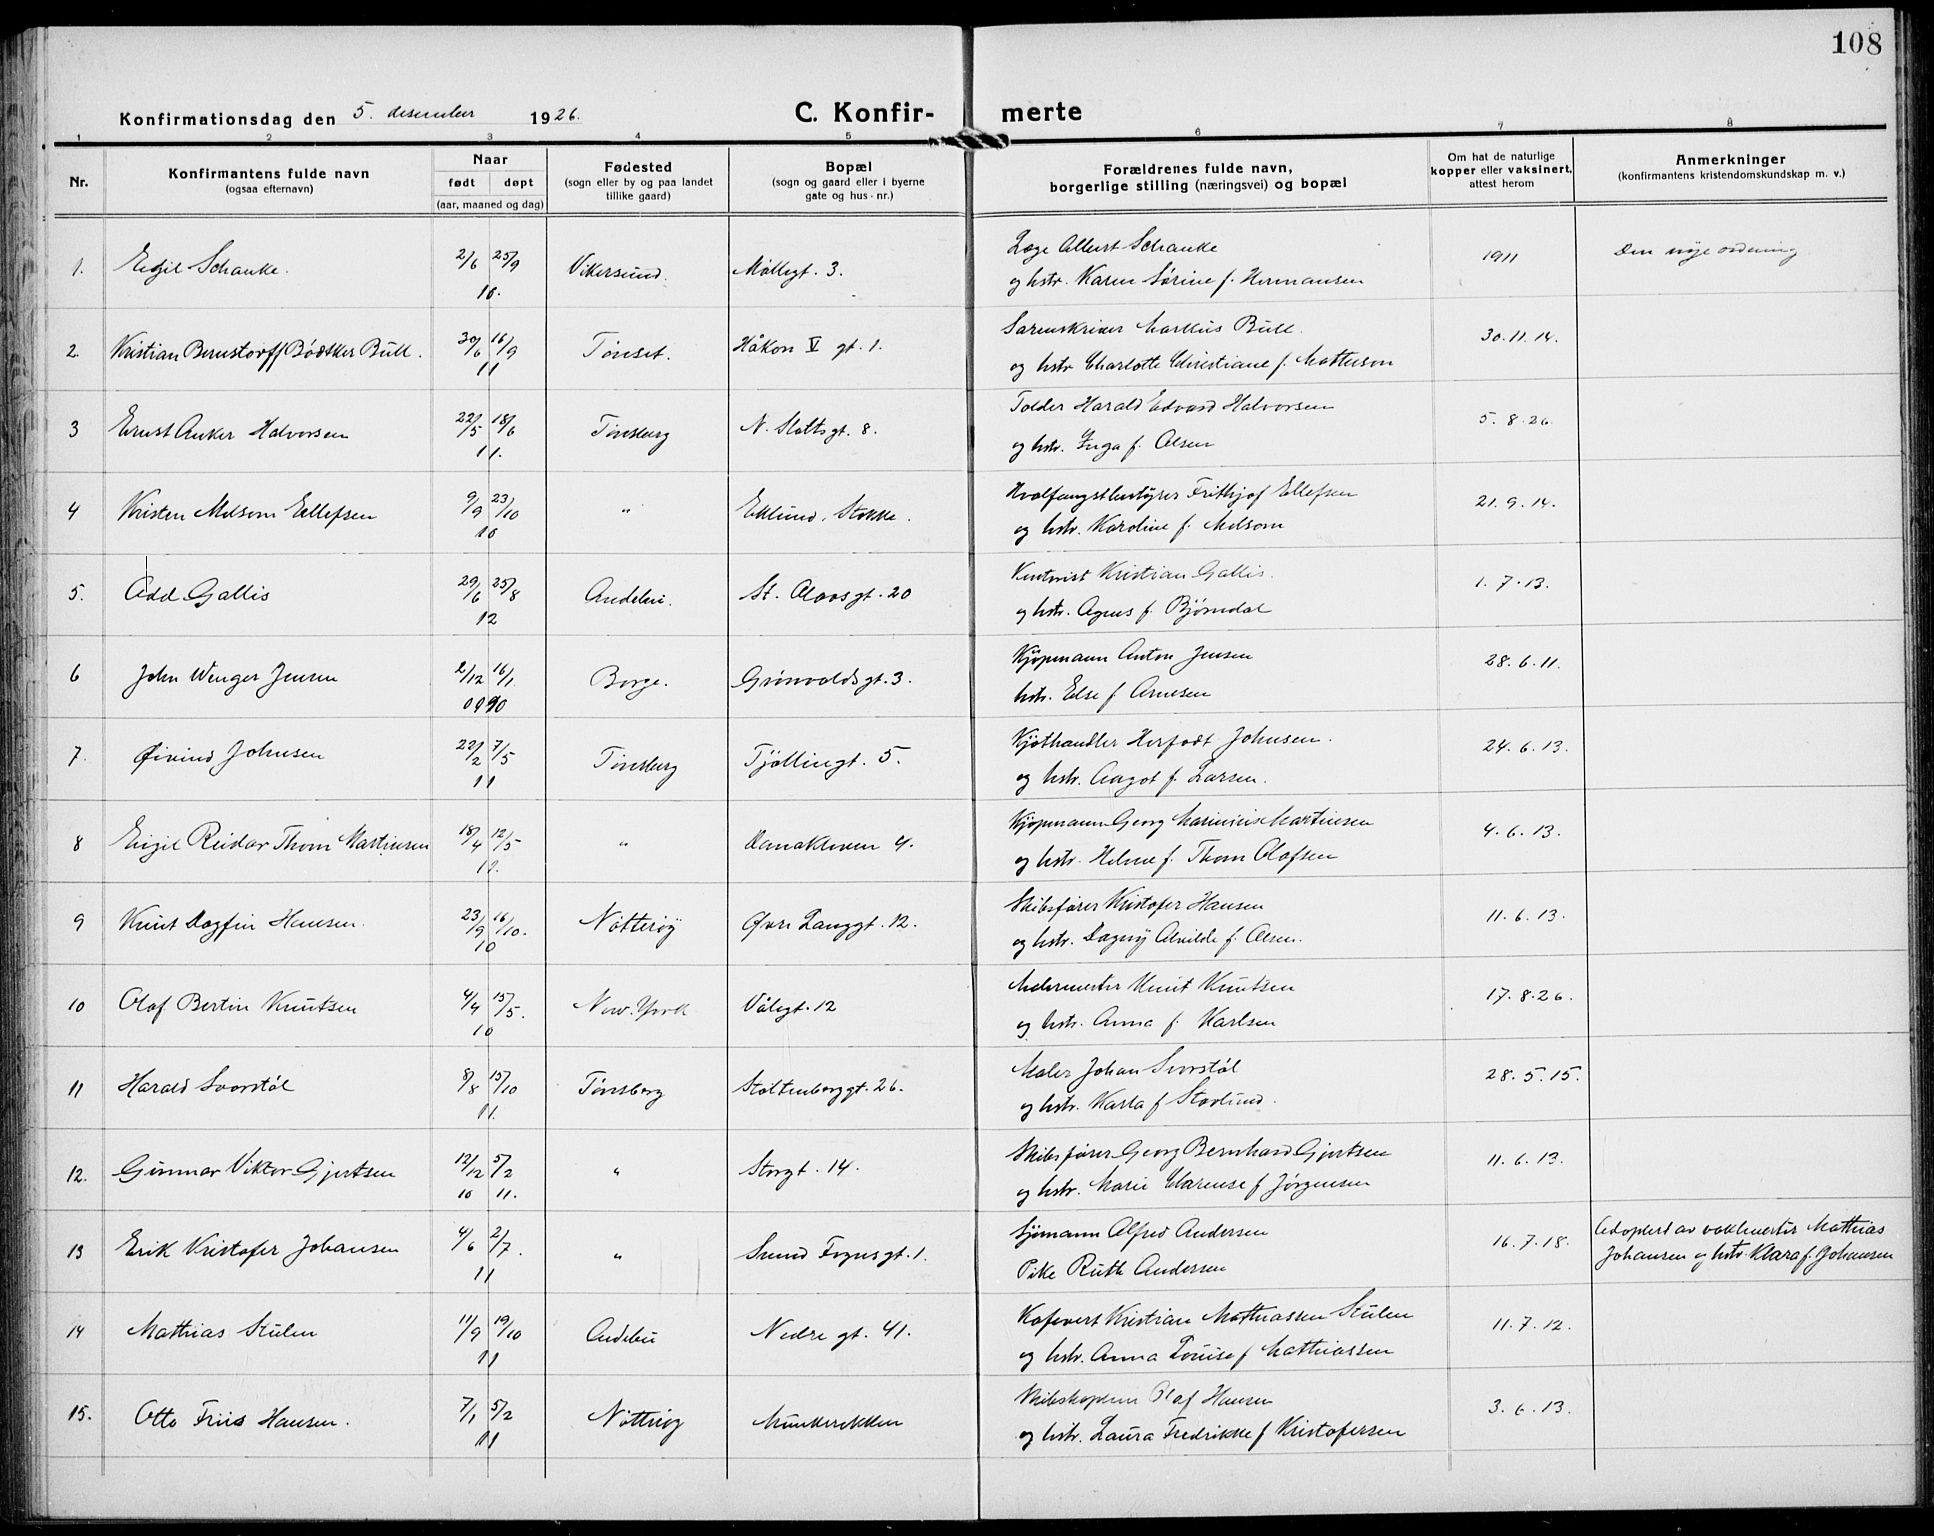 108
Konfirmationsdag den 5. desember 1926.
C. Konfir- merte
1 2 3 4 5 6 7 8
Nr.
Konfirmantens fulde navn
(ogsaa efternavn)
Naar
født døpt
(aar, maaned og dag)
Fødested
(sogn eller by og paa landet
tillike gaard)
Bopæl
(sogn og gaard eller i byerne
gate og hus-nr.)
Forældrenes fulde navn,
borgerlige stilling (næringsvei) og bopæl
Om hat de naturlige
kopper eller vaksinert,
attest herom
Anmerkninger
(konfirmantens kristendomskundskap m. v.)
1. Eigil Schanke. 2/6 25/9 10. Vikersund. Møllegt. 3.
Læge Albert Schanke
og hstr. Karen Sørine f. Hermansen
1911
Den nye ordning
2. Kristian Bernstorff Bødtker Bull. 30/6 16/9 11 Tønset. Håkon V gt. 1.
Sorenskriver Markus Bull.
og hstr Charlotte Christiane f. Matheson
30.11.14.
3 Ernst Anker Halvorsen 22/5 18/6 11. Tønsberg N. Slottsgt. 8.
Tolder Harald Edvard Halvorsen
og hstr. Inga f. Olsen
5.8.26.
4 Kristen Melsom Ellefsen 9/9 23/10 10 " Eklund, Stokke.
Hvalfangstbestyrer Frithjof Ellefsen
og hstr. Karoline f. Melsom
21.9.14.
5. Odd Gallis 29/6 25/8 12 Andebu. St. Olavsgt. 20
Kontorist Kristian Gallis.
og hstr. Agnes f. Bjørndal
1.7.13.
6 John Wenger Jensen 2/12 16/1 09 10 Borge. Grønvoldsgt. 3.
Kjøpmann Anton Jensen
hstr. Else f Arnesen
28.6.11.
7. Øivind Johnsen 22/2 7/5 11 Tønsberg Tjøllingt. 5.
Kjøthandler Herfodt Johnsen.
og hstr. Aagot f. Larsen.
24.6.13.
8 Eigil Reidar Thom Martinsen 18/4 12/5 12. " Danakleven 4.
Kjøpmann Georg Marinius Martinsen
og hstr. Helene f. Thom Olafsen
4.6.13.
9 Knut Dagfin Hansen. 23/9 16/10. 10 Nøtterøy Øvre Langgt. 12.
Skibsfører Kristofer Hansen
og hstr. Dagny Alvilde f. Olsen.
11.6.13.
10 Olaf Bertin Knutsen 4/4 15/5. 10 New-York Vålegt. 12
Malermester Knut Knutsen
og hstr. Anna f. Karlsen
17.8.26.
11 Harald Svorstøl 8/8 15/10 11. Tønsberg Stoltenberggt. 26.
Maler Johan Svorstøl
og hstr. Karla f Stavlund.
28.5.15.
12. Gunnar Viktor Gjertsen 12/12 5/2 10 11. " Storgt. 14.
Skibsfører Georg Bernhard Gjertsen
og hstr. Marie Clarense f Jørgensen
11.6.13.
13 Erik Kristofer Johansen 4/6 2/7. 11 " Svend Foynsgt. 1.
Sjømann Alfred Andersen
Pike Ruth Andersen
16.7.18.
Adoptert av vaktmester Mathias
Johansen og hstr. Klara f. Johansen
14 Mathias Stulen 11/9 19/10 11 Andebu Nedre gt. 41.
Kofevert Kristian Mathiassen Stulen
og hstr. Anna Louise f Mathiassen
11.7.12.
15. Otto Friis Hansen. 7/1 5/2 11 Nøtterøy Munkerekken
Skibskaptein Olaf Hansen
og hstr. Laura Fredrikke f Kristofersen
3.6.13.